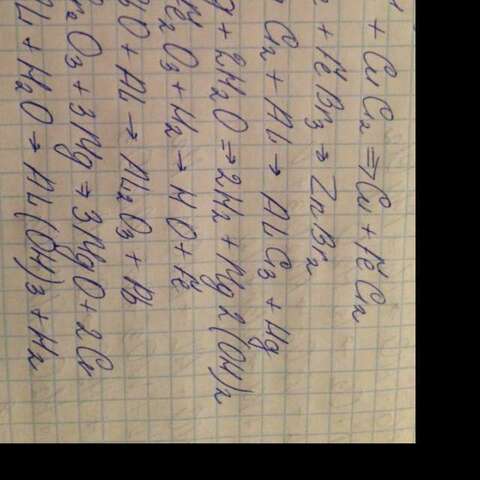 + CuCl2 => Cu + FeCl2
+ FeBr3 → ZnBr2
Cl2 + Al → AlCl3 + Hg
+ 2H2O => 2H2 + Mg2(OH)2
e2O3 + H2 → HO + Fe
O + Al → Al2O3 + Pb
r2O3 + 3Mg => 3MgO + 2Cr
+ H2O → Al(OH)3 + H2